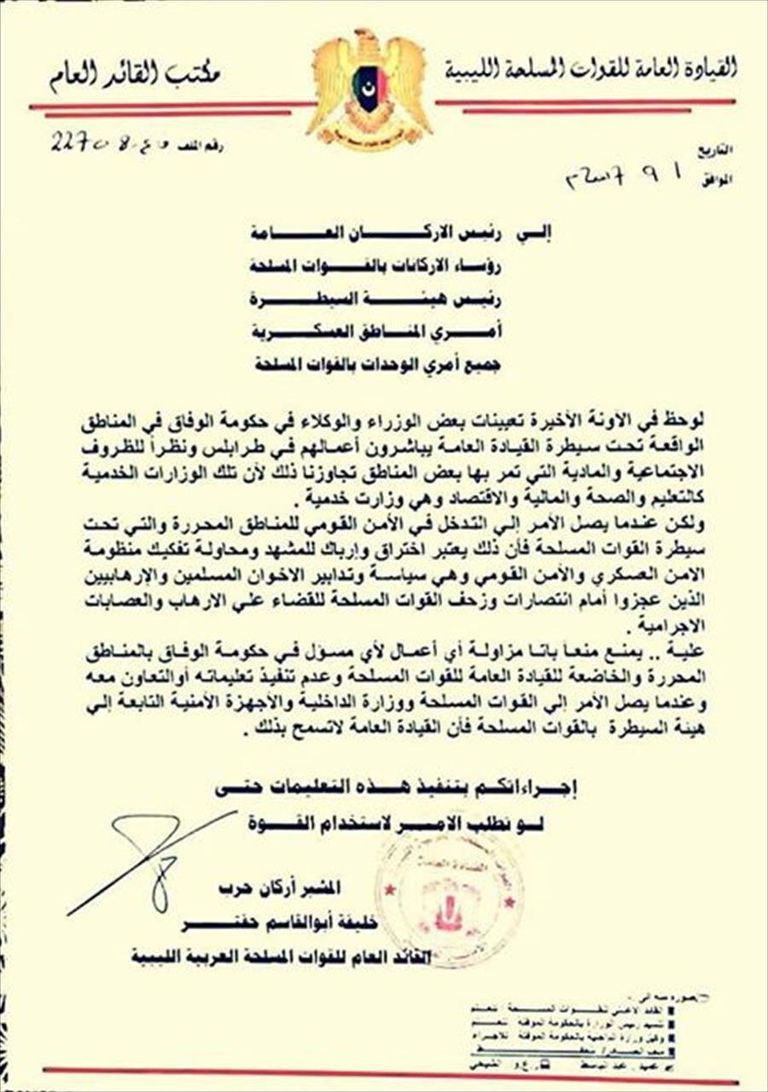 القيادة العامة للقوات المسلحة الليبية
مكتب القائد العام
التاريخ
الموافق
رقم الملف
إلي رئيس الاركان العامة
رؤساء الاركانات بالقوات المسلحة
رئيس هيئة السيطرة
أمري المناطق العسكرية
جميع أمري الوحدات بالقوات المسلحة
لوحظ في الأونة الأخيرة تعيينات بعض الوزراء والوكلاء في حكومة الوفاق في المناطق
الواقعة تحت سيطرة القيادة العامة يباشرون أعمالهم في طرابلس ونظراً للظروف
الاجتماعية والمادية التي تمر بها بعض المناطق تجاوزنا ذلك لأن تلك الوزارات الخدمية
كالتعليم والصحة والمالية والاقتصاد وهي وزارت خدمية .
ولكن عندما يصل الأمر إلي التدخل في الأمن القومي للمناطق المحررة والتي تحت
سيطرة القوات المسلحة فأن ذلك يعتبر اختراق وإرباك للمشهد ومحاولة تفكيك منظومة
الامن العسكري والأمن القومي وهي سياسة وتدابير الاخوان المسلمين والإرهابيين
الذين عجزوا أمام انتصارات وزحف القوات المسلحة للقضاء علي الارهاب والعصابات
الاجرامية .
علية .. يمنع منعاً باتا مزاولة أي أعمال لأي مسؤل في حكومة الوفاق بالمناطق
المحررة والخاضعة للقيادة العامة للقوات المسلحة وعدم تنفيذ تعليماته أوالتعاون معه
وعندما يصل الأمر إلي القوات المسلحة ووزارة الداخلية والأجهزة الأمنية التابعة إلي
هيئة السيطرة بالقوات المسلحة فأن القيادة العامة لاتسمح بذلك .
إجراءاتكم بتنفيذ هذه التعليمات حتى
لو تطلب الامر لاستخدام القوة
المشير أركان حرب
خليفة أبوالقاسم حفتر
القائد العام للقوات المسلحة العربية الليبية
القيادة العامة
صورة منه الى